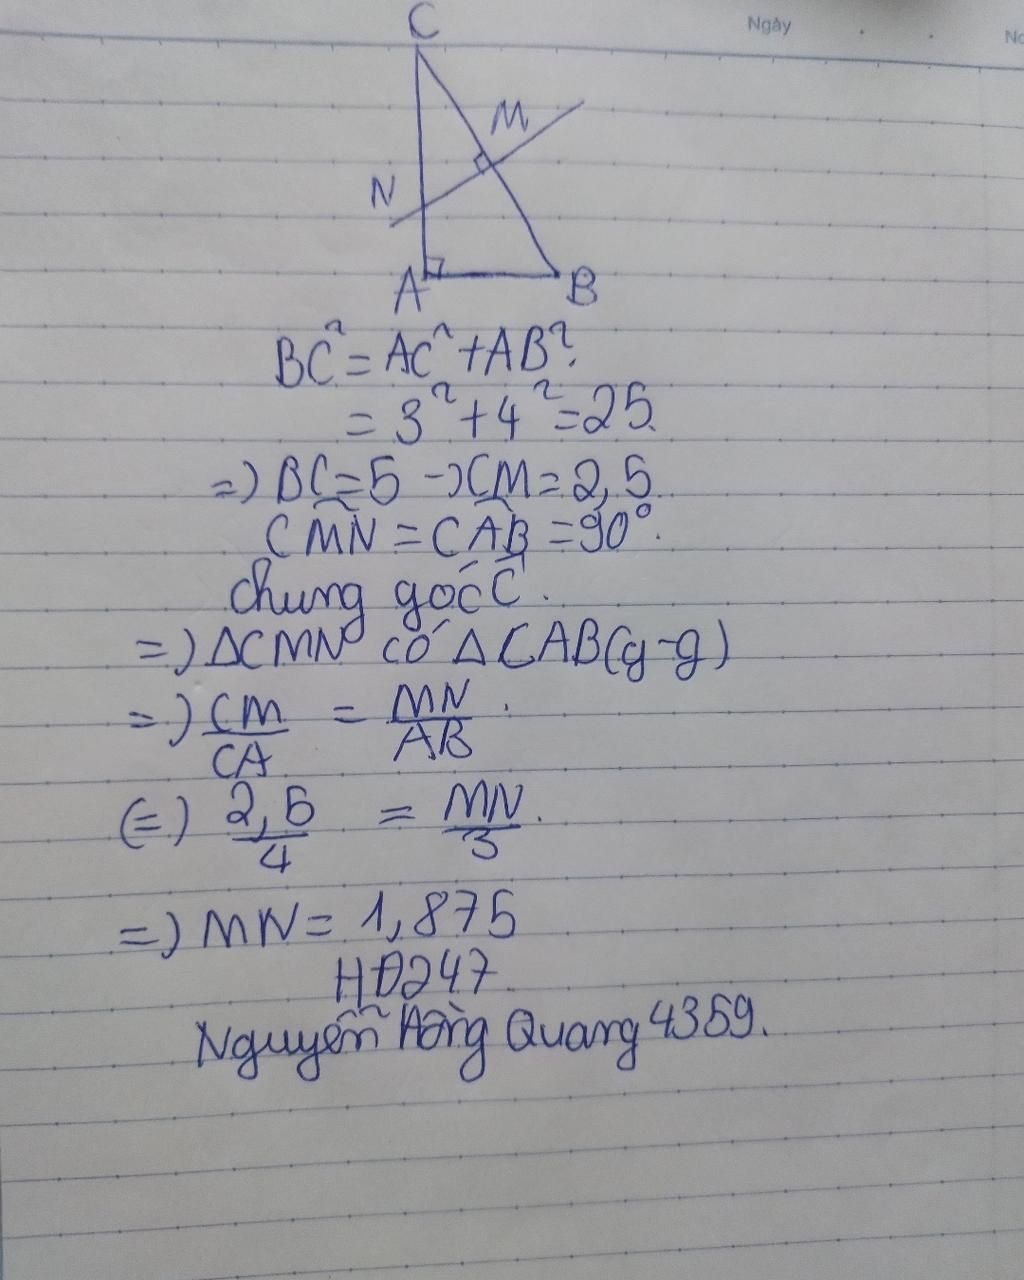 Ngày
No
C
M
N
A
B
BC² = AC² + AB².
= 3² + 4² = 25.
=) BC = 5 -) CM = 2,5.
CMN̂ = CAB̂ = 90°.
chung góc C.
=) ΔCMN có ΔCAB (g-g)
=) CM/CA = MN/AB.
(=) 2,5/4 = MN/3.
=) MN = 1,875
HĐ247.
Nguyễn Hồng Quang 4359.